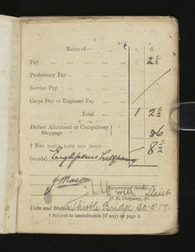 Rates of—
s. d.
Pay ... 1 2½
Proficiency Pay ...
Service Pay ...
Corps Pay or Engineer Pay ...
Total ... 1 2½
Deduct Allotment or Compulsory Stoppage } 6
§ Net daily rate for issue— 8½
(words) Eightpence Halfpenny
Lieut
O. C. Company, &c.
Date and Station
† Subject to amendments (if any) on page 4.